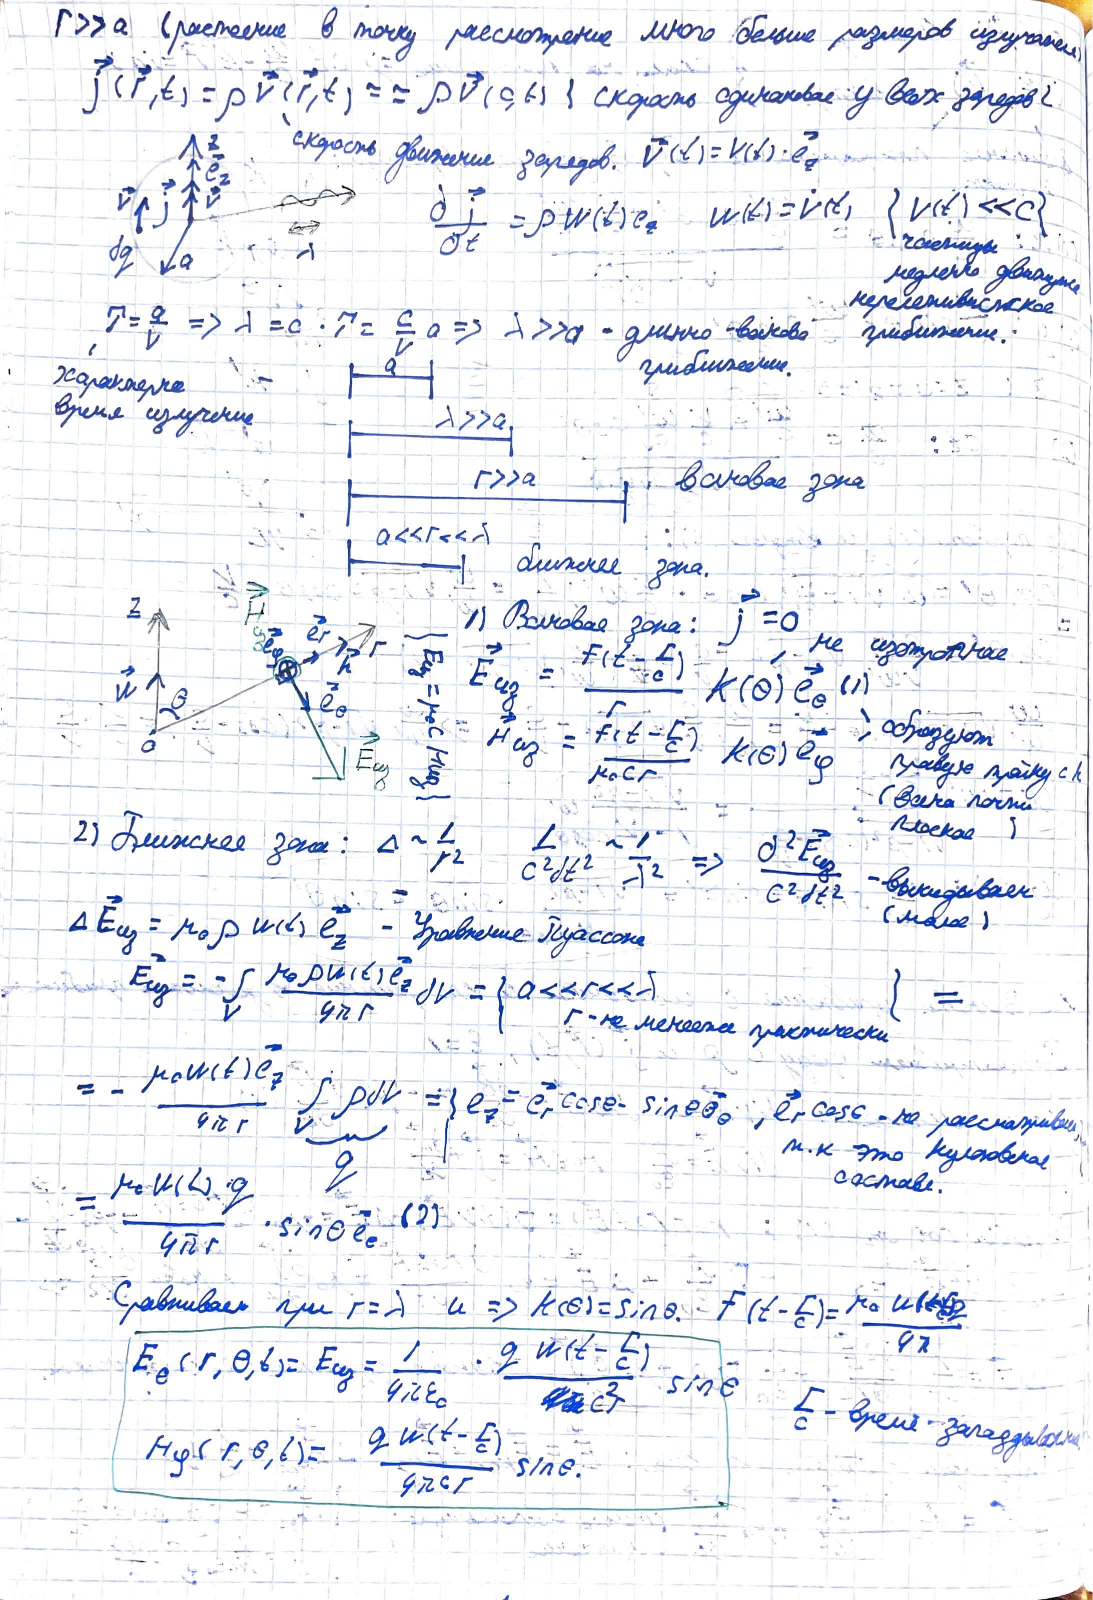 r>>a (растоение в точку рассмотрение много больше размеров излучателя)
j⃗(r⃗,t) = ρv⃗(r⃗,t) = = ρv⃗(0,t) } скорость одинаковае у всех зарядов {
скорость движение зарядов. v⃗(t)=v(t)·e⃗z
z
e⃗z
v⃗ j⃗ v⃗
dq a λ
∂j⃗/∂t = ρW(t)ez W(t)=v̇(t) {v(t)<<c}
частицы
медленно движущие
нерелятивисткое
приближение.
T=a/v => λ=c·T= c/v a => λ>>a - длинно-волново
приближение.
характерне
время излучение
a
λ>>a
r>>a волновае зона
a<<r<<λ
ближнее зона.
1) Волновая зона: j⃗=0
, не изотропное
E⃗из = F(t-r/c)/r K(θ)e⃗θ (1)
H⃗из = F(t-r/c)/μ₀cr K(θ)e⃗φ
{Eиз=μ₀cHиз}
образуют
правую тройку с k
(волна почти
плоское)
z H⃗из e⃗φ e⃗r r
k⃗
w⃗ θ e⃗θ
0 E⃗из
2) Ближнее зона: Δ ~ 1/r² 1/c²∂t² ~ 1/λ² => ∂²E⃗из/c²∂t² - выкидываем
(мало)
ΔE⃗из = μ₀ρW(t)e⃗z - Уравнение Пуассона
E⃗из = -∫V μ₀ρW(t)e⃗z/4πr dV = { a<<r<<λ
r-не меняется практически } =
= - μ₀W(t)e⃗z/4πr ∫V ρdV = { ez = e⃗r cosθ - sinθe⃗θ , e⃗r cosθ - не рассматриваем,
т.к это Кулоновское
составл.
q
= μ₀W(t)·q/4πr · sinθe⃗θ (2)
Сравниваем при r=λ и => K(θ)=sinθ. F(t-r/c)= μ₀ W(t)q/4π
Eθ(r,θ,t)= Eиз = 1/4πε₀ · qW(t-r/c)/c²r sinθ
r/c - время запаздывания
Hφ(r,θ,t)= qW(t-r/c)/4πcr sinθ.